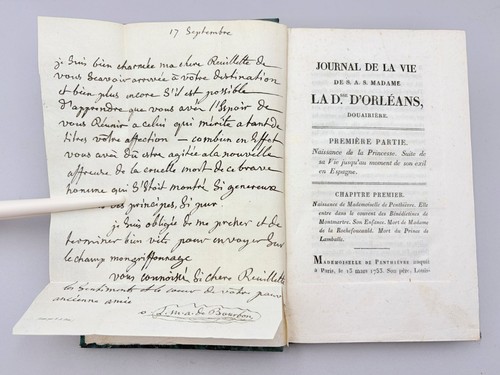 17 Septembre
je suis bien charmée ma chere Reuillette de
vous scavoir arrivée à votre destination
et bien plus encore s'il est possible
d'apprendre que vous avés l'Espoir de
vous Réunir a celui qui mérite a tant de
titres votre affection — combien en Effet
vous avés dû être agitée a la nouvelle
affreuse de la cruelle mort de ce brave
homme qui s'Etait montré si genereux
principes, si pur.
je suis obligée de me pecher et de
terminer bien vite pour envoyer sur
le champ mon griffonnage
vous connoissés si chere Reuillette
les sentiments et le coeur de votre pauvre
ancienne amie
de Bourbon
JOURNAL DE LA VIE
DE S. A. S. MADAME
LA D.sse D'ORLÉANS,
DOUAIRIÈRE.
PREMIÈRE PARTIE.
Naissance de la Princesse. Suite de
sa Vie jusqu'au moment de son exil
en Espagne.
CHAPITRE PREMIER.
Naissance de Mademoiselle de Penthièvre. Elle
entre dans le couvent des Bénédictines de
Montmartre. Son Enfance. Mort de Madame
de la Rochefoucauld. Mort du Prince de
Lamballe.
MADEMOISELLE DE PENTHIÈVRE naquit
à Paris, le 13 mars 1753. Son père, Louis-
1